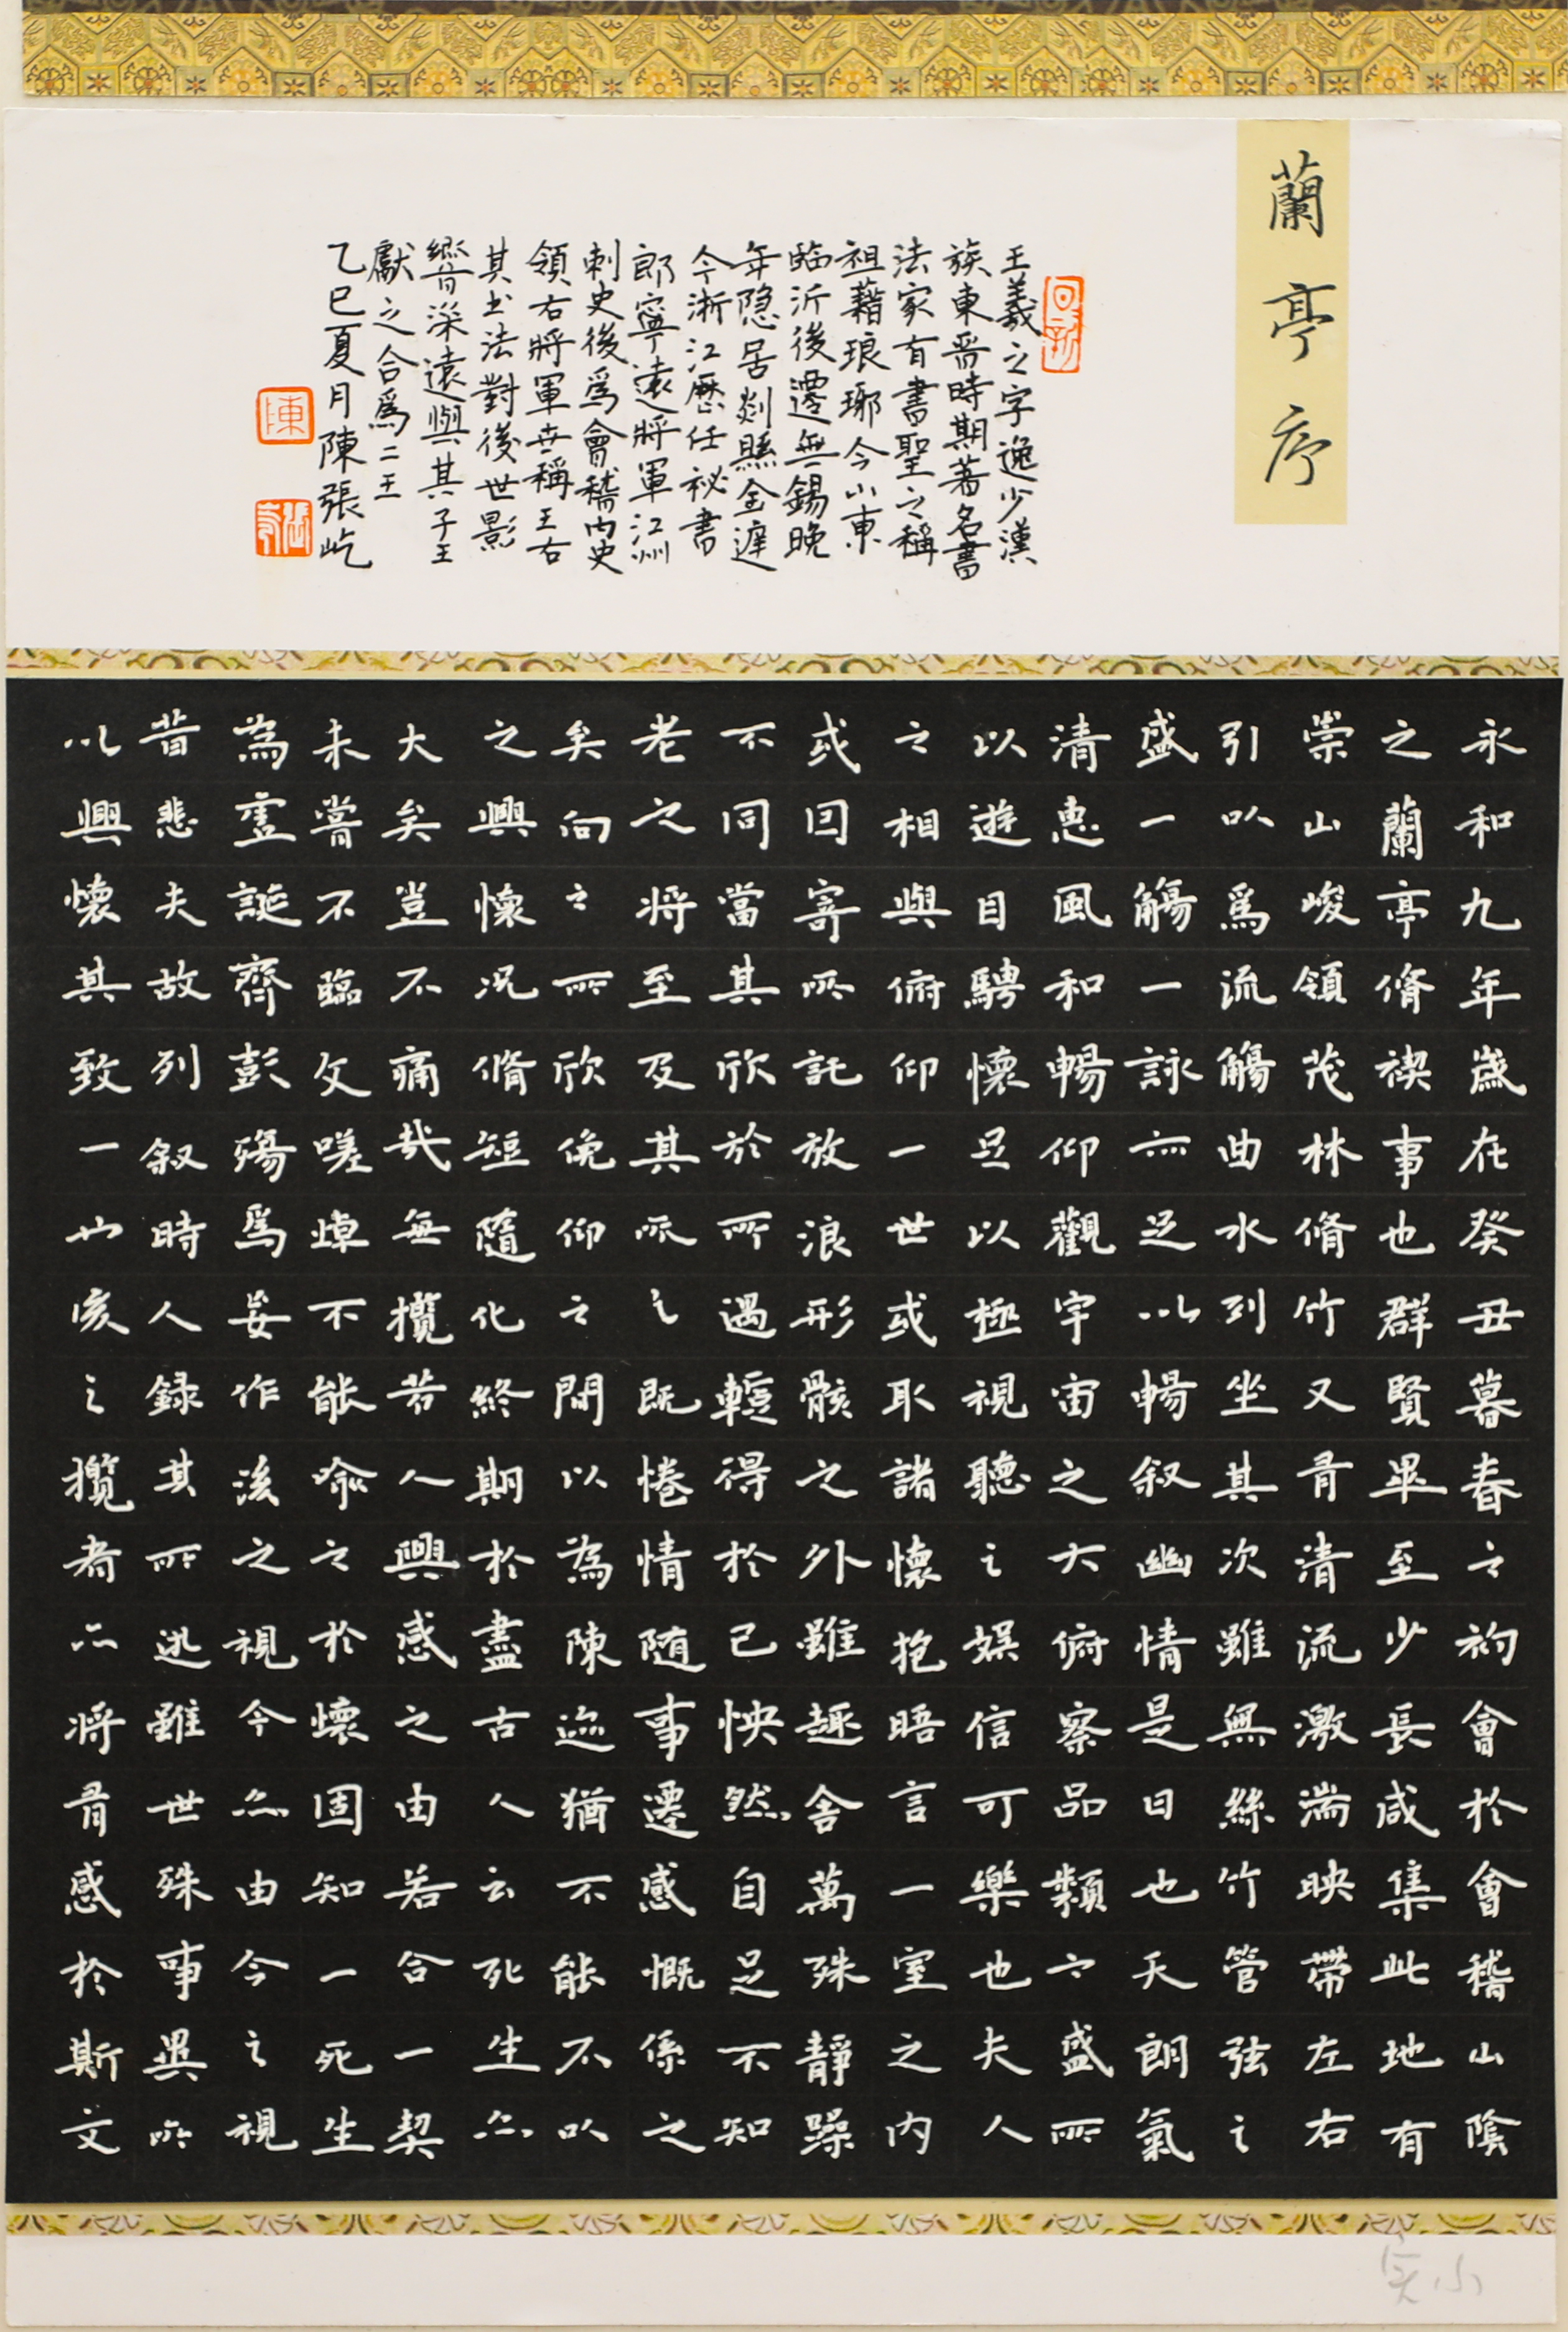 蘭亭序
王羲之字逸少漢
族東晉時期著名書
法家有書聖之稱
祖藉琅琊今山東
臨沂後遷無錫晚
年隐居剡縣金庭
今浙江歷任祕書
郎寧遠將軍江州
刺史後爲會稽內史
領右將軍世稱王右
其书法對後世影
響深遠與其子王
獻之合爲二王
乙巳夏月陳張屹
陳
永和九年歲在癸丑暮春之初會於會稽山陰
之蘭亭脩禊事也群賢畢至少長咸集此地有
崇山峻領茂林脩竹又有清流激湍映帶左右
引以爲流觴曲水列坐其次雖無絲竹管弦之
盛一觴一詠亦足以暢叙幽情是日也天朗氣
清惠風和暢仰觀宇宙之大俯察品類之盛所
以遊目騁懷足以極視聽之娛信可樂也夫人
之相與俯仰一世或取諸懷抱晤言一室之內
或因寄所託放浪形骸之外雖趣舍萬殊靜躁
不同當其欣於所遇蹔得於己怏然自足不知
老之將至及其所之既惓情隨事遷感慨係之
矣向之所欣俛仰之間以為陳迹猶不能不以
之興懷況脩短隨化終期於盡古人云死生亦
大矣豈不痛哉無攬昔人興感之由若合一契
未嘗不臨文嗟悼不能喻之於懷固知一死生
為虛誕齊彭殤爲妄作後之視今亦由今之視
昔悲夫故列叙時人錄其所述雖世殊事異所
以興懷其致一也後之攬者亦將有感於斯文